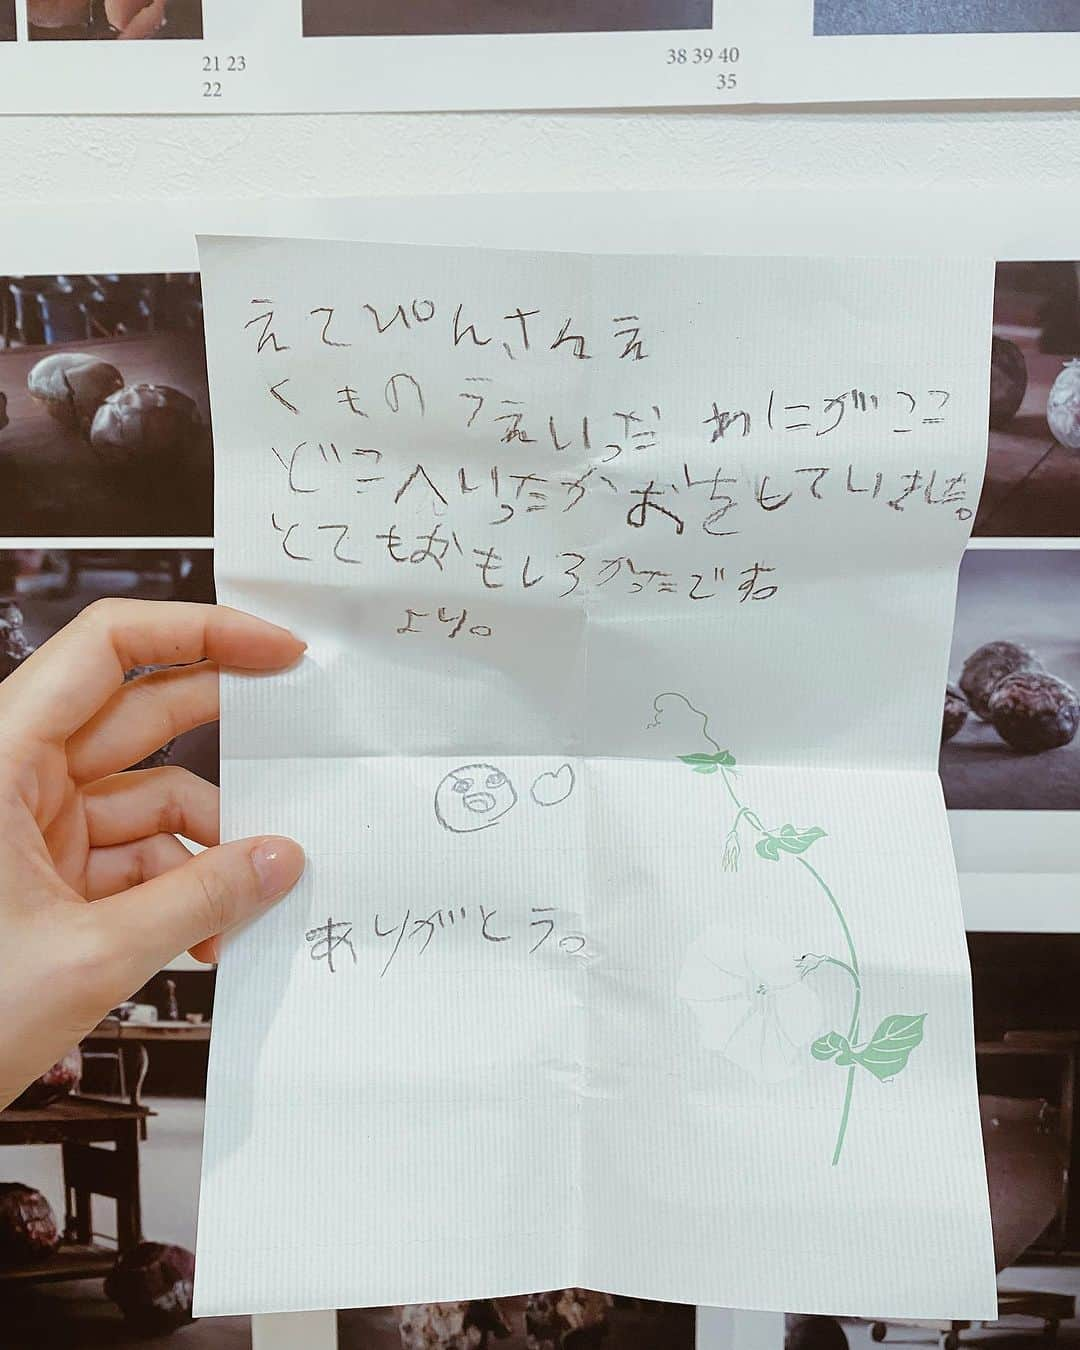 21 23
22
38 39 40
35
えてぴんさんえ
くものうえいった わにがここ
どこへいったかおをしていました。
とてもおもしろかったです。
より。
ありがとう。